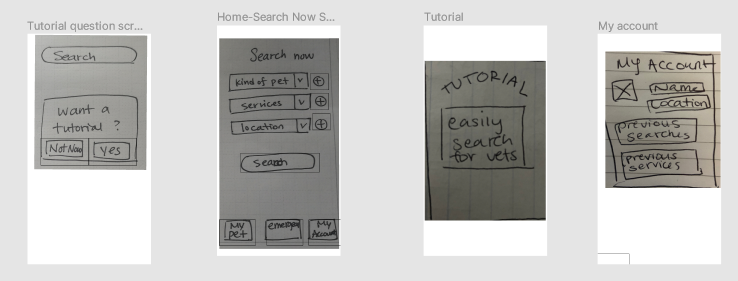 Tutorial question scr...
Search
want a
tutorial ?
Not Now
yes
Home-Search Now S...
Search now
kind of pet
services
location
search
My
pet
My
Account
Tutorial
TUTORIAL
easily
search
for vets
My account
My Account
Name
Location
previous
searches
previous
services